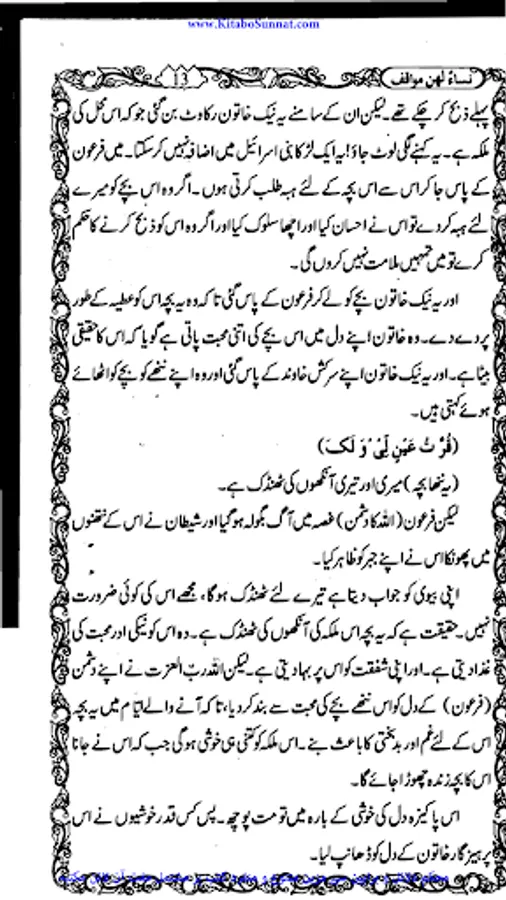 www.KitaboSunnat.com
نساءٌ لھن مواقف
13
پہلے ذبح کر چکے تھے۔ لیکن ان کے سامنے یہ نیک خاتون رکاوٹ بن گئی جو کہ اس محل کی
ملکہ ہے۔ یہ کہنے لگی لوٹ جاؤ! یہ ایک لڑکا بنی اسرائیل میں اضافہ نہیں کر سکتا۔ میں فرعون
کے پاس جا کر اس سے اس بچہ کے لئے ہبہ طلب کرتی ہوں۔ اگر وہ اس بچے کو میرے
لئے ہبہ کر دے تو اس نے احسان کیا اور اچھا سلوک کیا اور اگر وہ اس کو ذبح کرنے کا حکم
کرے تو میں تمہیں ملامت نہیں کروں گی۔
اور یہ نیک خاتون بچے کو لے کر فرعون کے پاس گئی تا کہ وہ یہ بچہ اس کو عطیہ کے طور
پر دے دے۔ وہ خاتون اپنے دل میں اس بچے کی اتنی محبت پاتی ہے گویا کہ اس کا حقیقی
بیٹا ہے۔ اور یہ نیک خاتون اپنے سرکش خاوند کے پاس گئی اور وہ اپنے ننھے کو بچے کو اٹھائے
ہوئے کہتی ہیں۔
(قُرَّتُ عَيْنٍ لِّي وَ لَكَ)
(یہ ننھا بچہ) میری اور تیری آنکھوں کی ٹھنڈک ہے۔
لیکن فرعون (اللہ کا دشمن) غصہ میں آگ بگولہ ہو گیا اور شیطان نے اس کے نتھنوں
میں پھونکا اس نے اپنے جبر کو ظاہر کیا۔
اپنی بیوی کو جواب دیتا ہے تیرے لئے ٹھنڈک ہوگا، مجھے اس کی کوئی ضرورت
نہیں۔ حقیقت ہے کہ یہ بچہ اس ملکہ کی آنکھوں کی ٹھنڈک ہے۔ وہ اس کو نیکی اور محبت کی
غذا دیتی ہے۔ اور اپنی شفقت کو اس پر بہا دیتی ہے۔ لیکن اللہ ربّ العزت نے اپنے دشمن
(فرعون) کے دل کو اس ننھے بچے کی محبت سے بند کر دیا، تا کہ آنے والے ایّام میں یہ بچہ
اس کے لئے غم اور بدبختی کا باعث بنے۔ اس ملکہ کو کتنی ہی خوشی ہوگی جب کہ اس نے جانا
اس کا بچہ زندہ چھوڑا جائے گا۔
اس پاکیزہ دل کی خوشی کے بارہ میں تو مت پوچھ۔ پس کس قدر خوشیوں نے اس
پرہیز گار خاتون کے دل کو ڈھانپ لیا۔